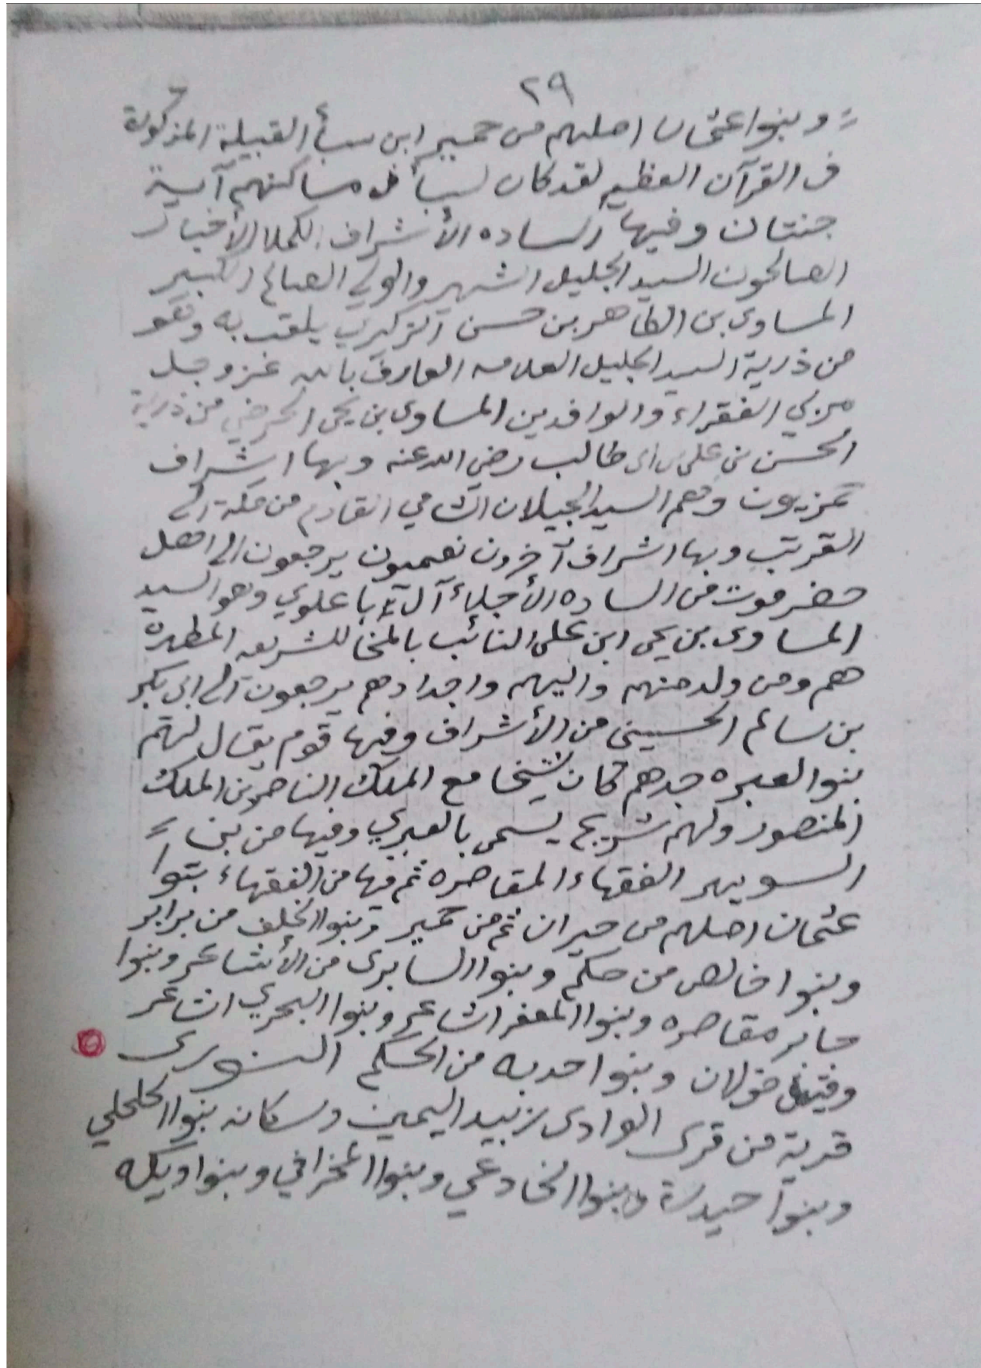 ٢٩
وبنوا عثمان اصلهم من حمير ابن سبأ القبيلة المذكورة
في القرآن العظيم لقد كان لسبأ في مساكنهم آية
جنتان وفيها الساده الأشراف الكملا الأخيار
الصالحون السيد الجليل الشهير والولي الصالح الكبير
المساوى بن الطاهر بن حسن الزكري يلقب به وهو
من ذرية السيد الجليل العلامه العارف بالله عز وجل
مربي الفقراء والوافدين المساوى بن يحي الحرضي من ذرية
الحسن بن علي بن ابى طالب رضي الله عنه وبها اشراف
وهم السيد الجيلان الشامي القادم من مكة الى
القرتب وبها اشراف آخرون نعميون يرجعون الى اهل
حضرموت من الساده الأجلاء آل باعلوي وهو السيد
المساوى بن يحي ابن على النائب بالمخا للشريعه المطهرة
هم ومن ولد منهم واليهم واجدادهم يرجعون الى ابى بكر
بن سالم الحسيني من الأشراف وفيها قوم يقال لهم
بنوا العبره جدهم كان شيخا مع الملك الناصر بن الملك
المنصور ولهم شريج يسمى بالعبري وفيها من بني
السويهر الفقهاء المقاصره ثم فيها من الفقهاء بنوا
عثمان اصلهم من حيران ثم من حمير وبنوا الخلف من برابر
وبنوا خالص من حكم وبنوا السابرى من الأشاعر وبنوا
جابر مقاصره وبنوا المعفر اشاعر وبنوا البحري اشاعر
خولان وبنوا حدبه من الحكم
قرية من قرى الوادى زبيد اليمين وسكانه بنوا الحلحلي
وبنوا حيدرة وبنوا الخادعي وبنوا المخرافي وبنوا ويكه